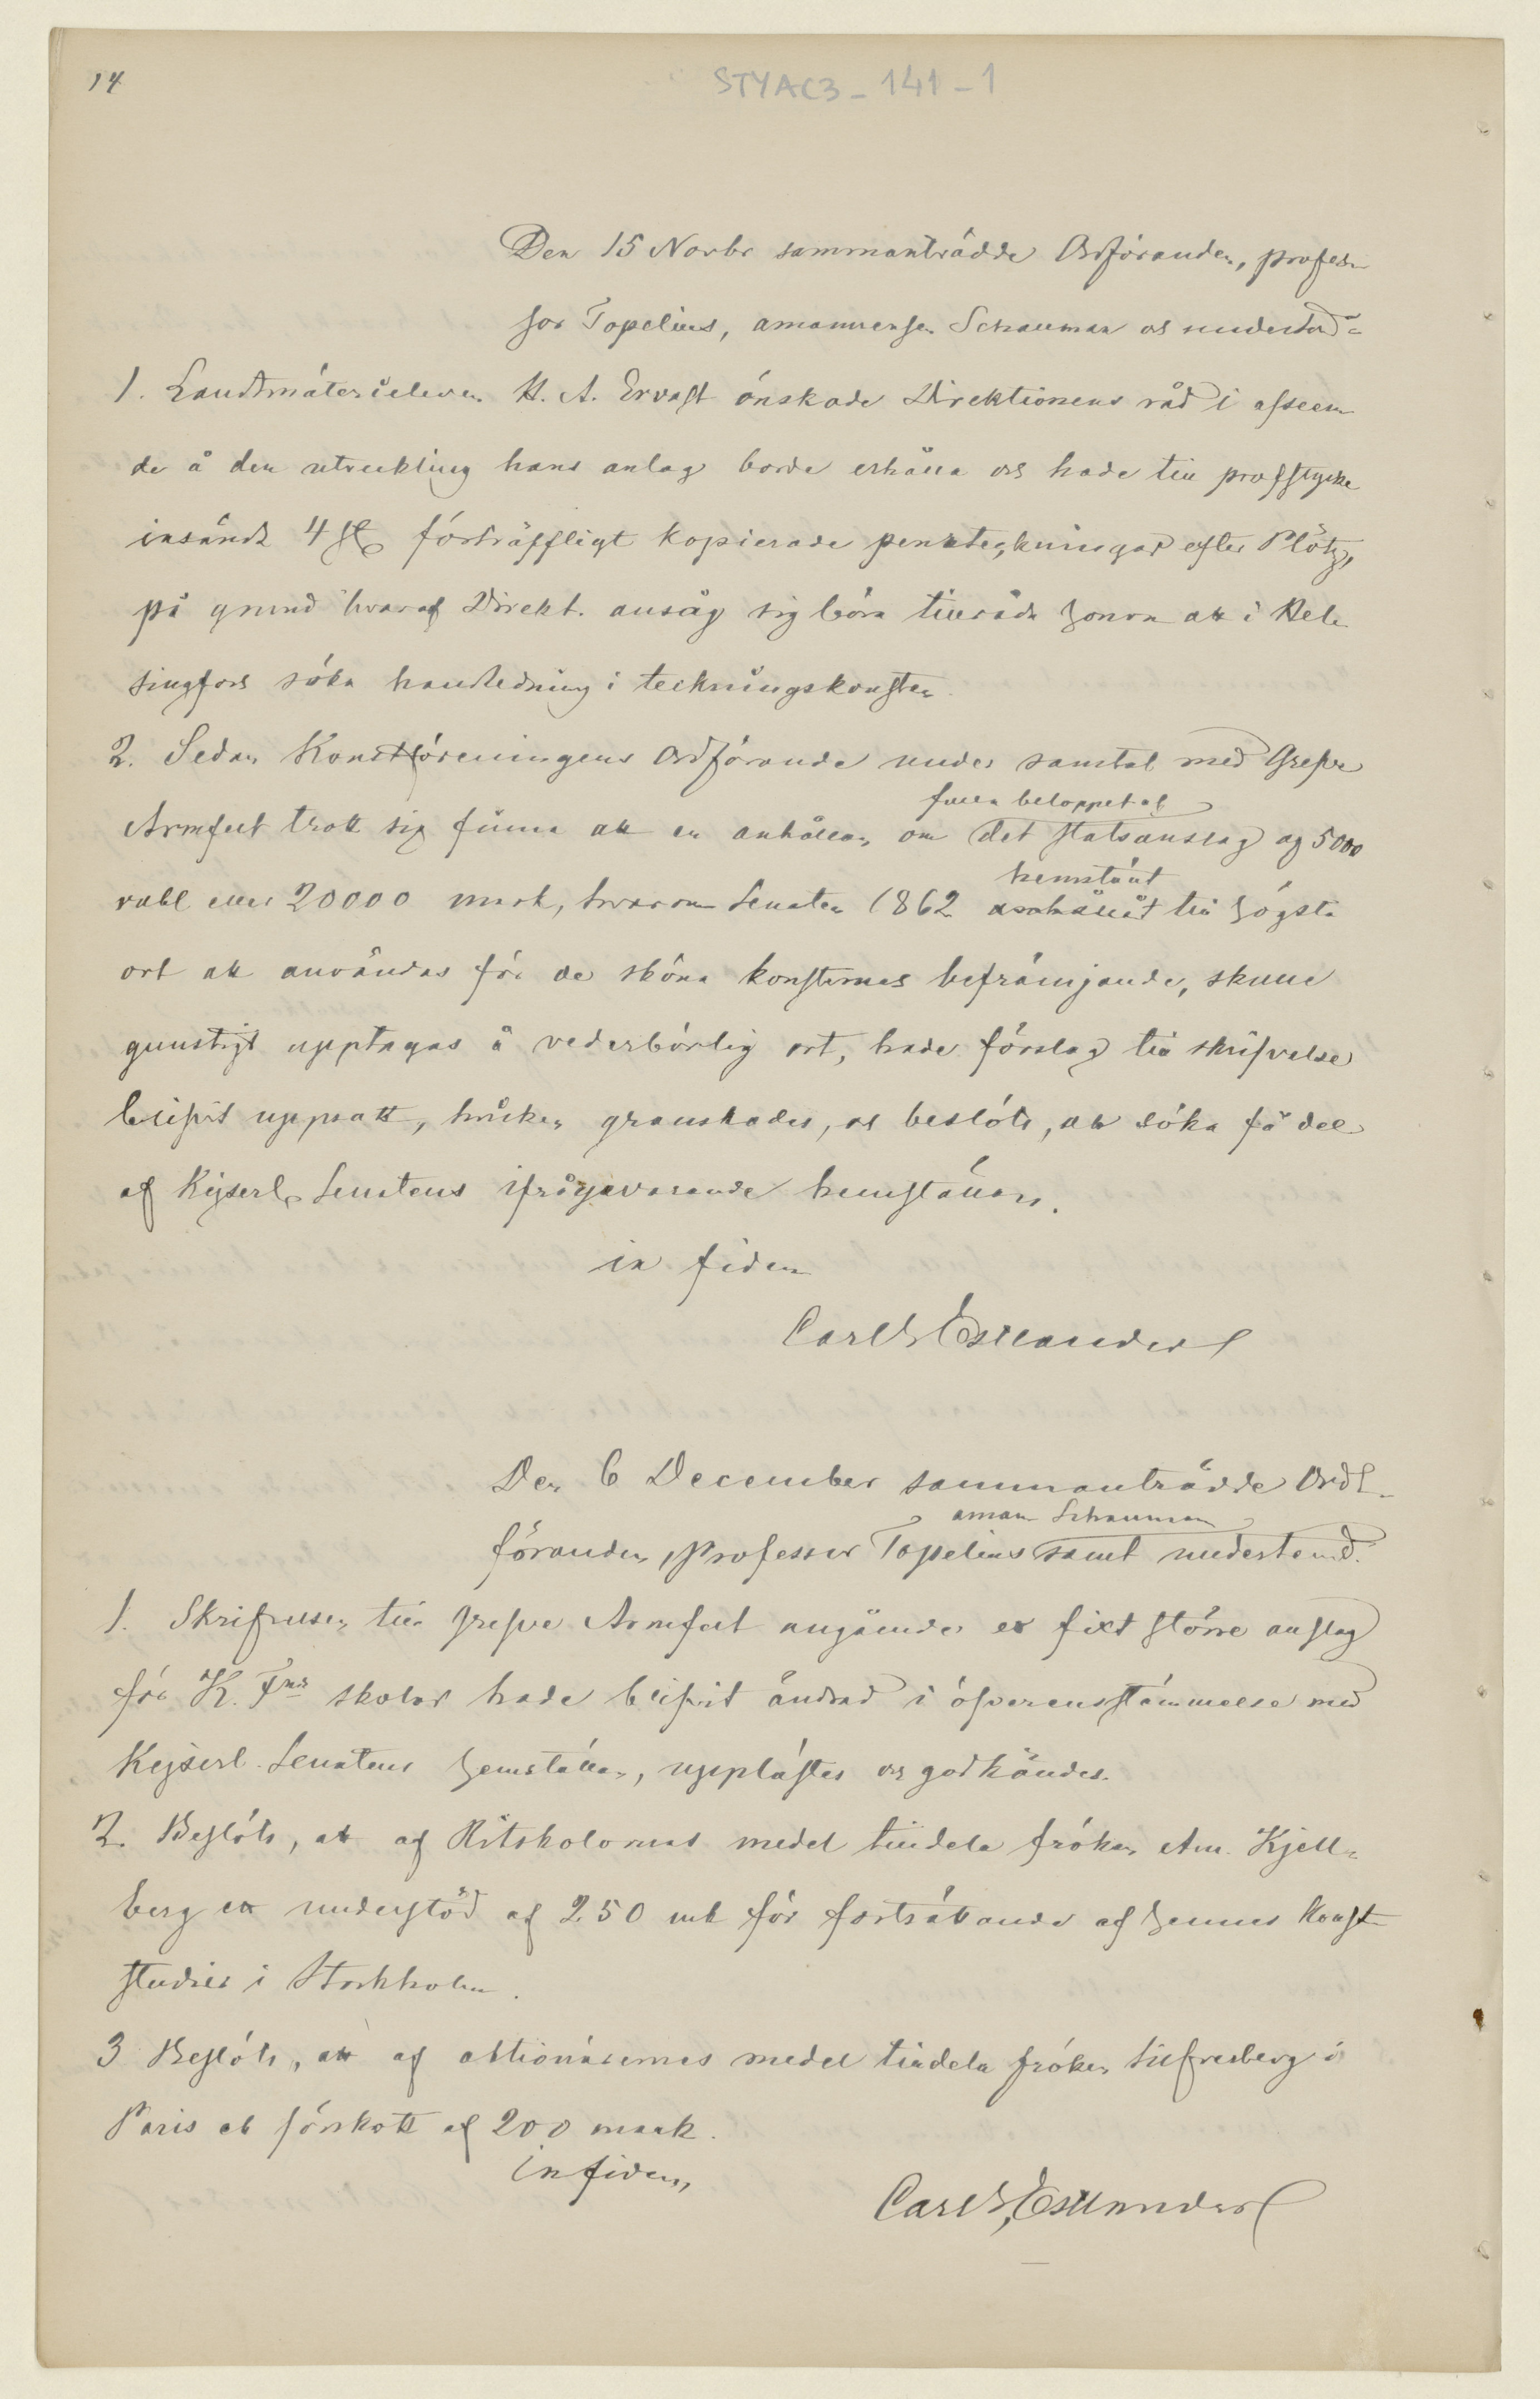 14
STYAC3 - 141 - 1
Den 15 Novbr sammanträdde Ordföranden, profes-
sor Topelius, amanuensen Schauman och undertecknad
1. Landtmäterieleven K. A. Ervast önskade Direktionens råd i afseen-
de å den utveckling hans anlag borde erhålla och hade till profstycke
insändt 4 st förträffligt kopierade penntekningar efter Plötz,
på grund hvaraf Direkt. ansåg sig böra tillråda honom att i Hel-
singfors söka handledning i teckningskonsten.
2. Sedan Konstföreningens Ordförande under samtal med Grefve
fulla beloppet af
Armfelt trott sig finna att en anhållan om det statsanslag af 5000
hemstält
rubl eller 20000 mark, hvarom Senaten 1862 anhållit till högsta
ort att användas för de sköna konsternas befrämjande, skulle
gunstigt upptagas å vederbörlig ort, hade förslag till skrifvelse
blifvit uppsatt, hvilken granskades, och beslöts, att söka få del
af Kejserl. Senatens ifrågavarande hemställan.
in fidem
Carl G Estlander
Den 6 December sammanträdde Ord-
aman Schauman
föranden, professor Topelius samt undertecknad.
1. Skrifvelsen till Grefve Armfelt angående ett fixt större anslag
för K. Fns skolor hade blifvit ändrad i öfverensstämmelse med
Kejserl. Senatens hemställan, upplästes och godkändes.
2. Beslöts, att af Ritskolornas medel tilldela fröken Am. Kjell-
berg ett understöd af 250 mk för fortsättande af hennes konst-
studier i Stockholm.
3 Beslöts, att af aktionärernas medel tilldela fröken Silfverberg i
Paris ett förskott af 200 mark.
in fidem,
Carl G Estlander